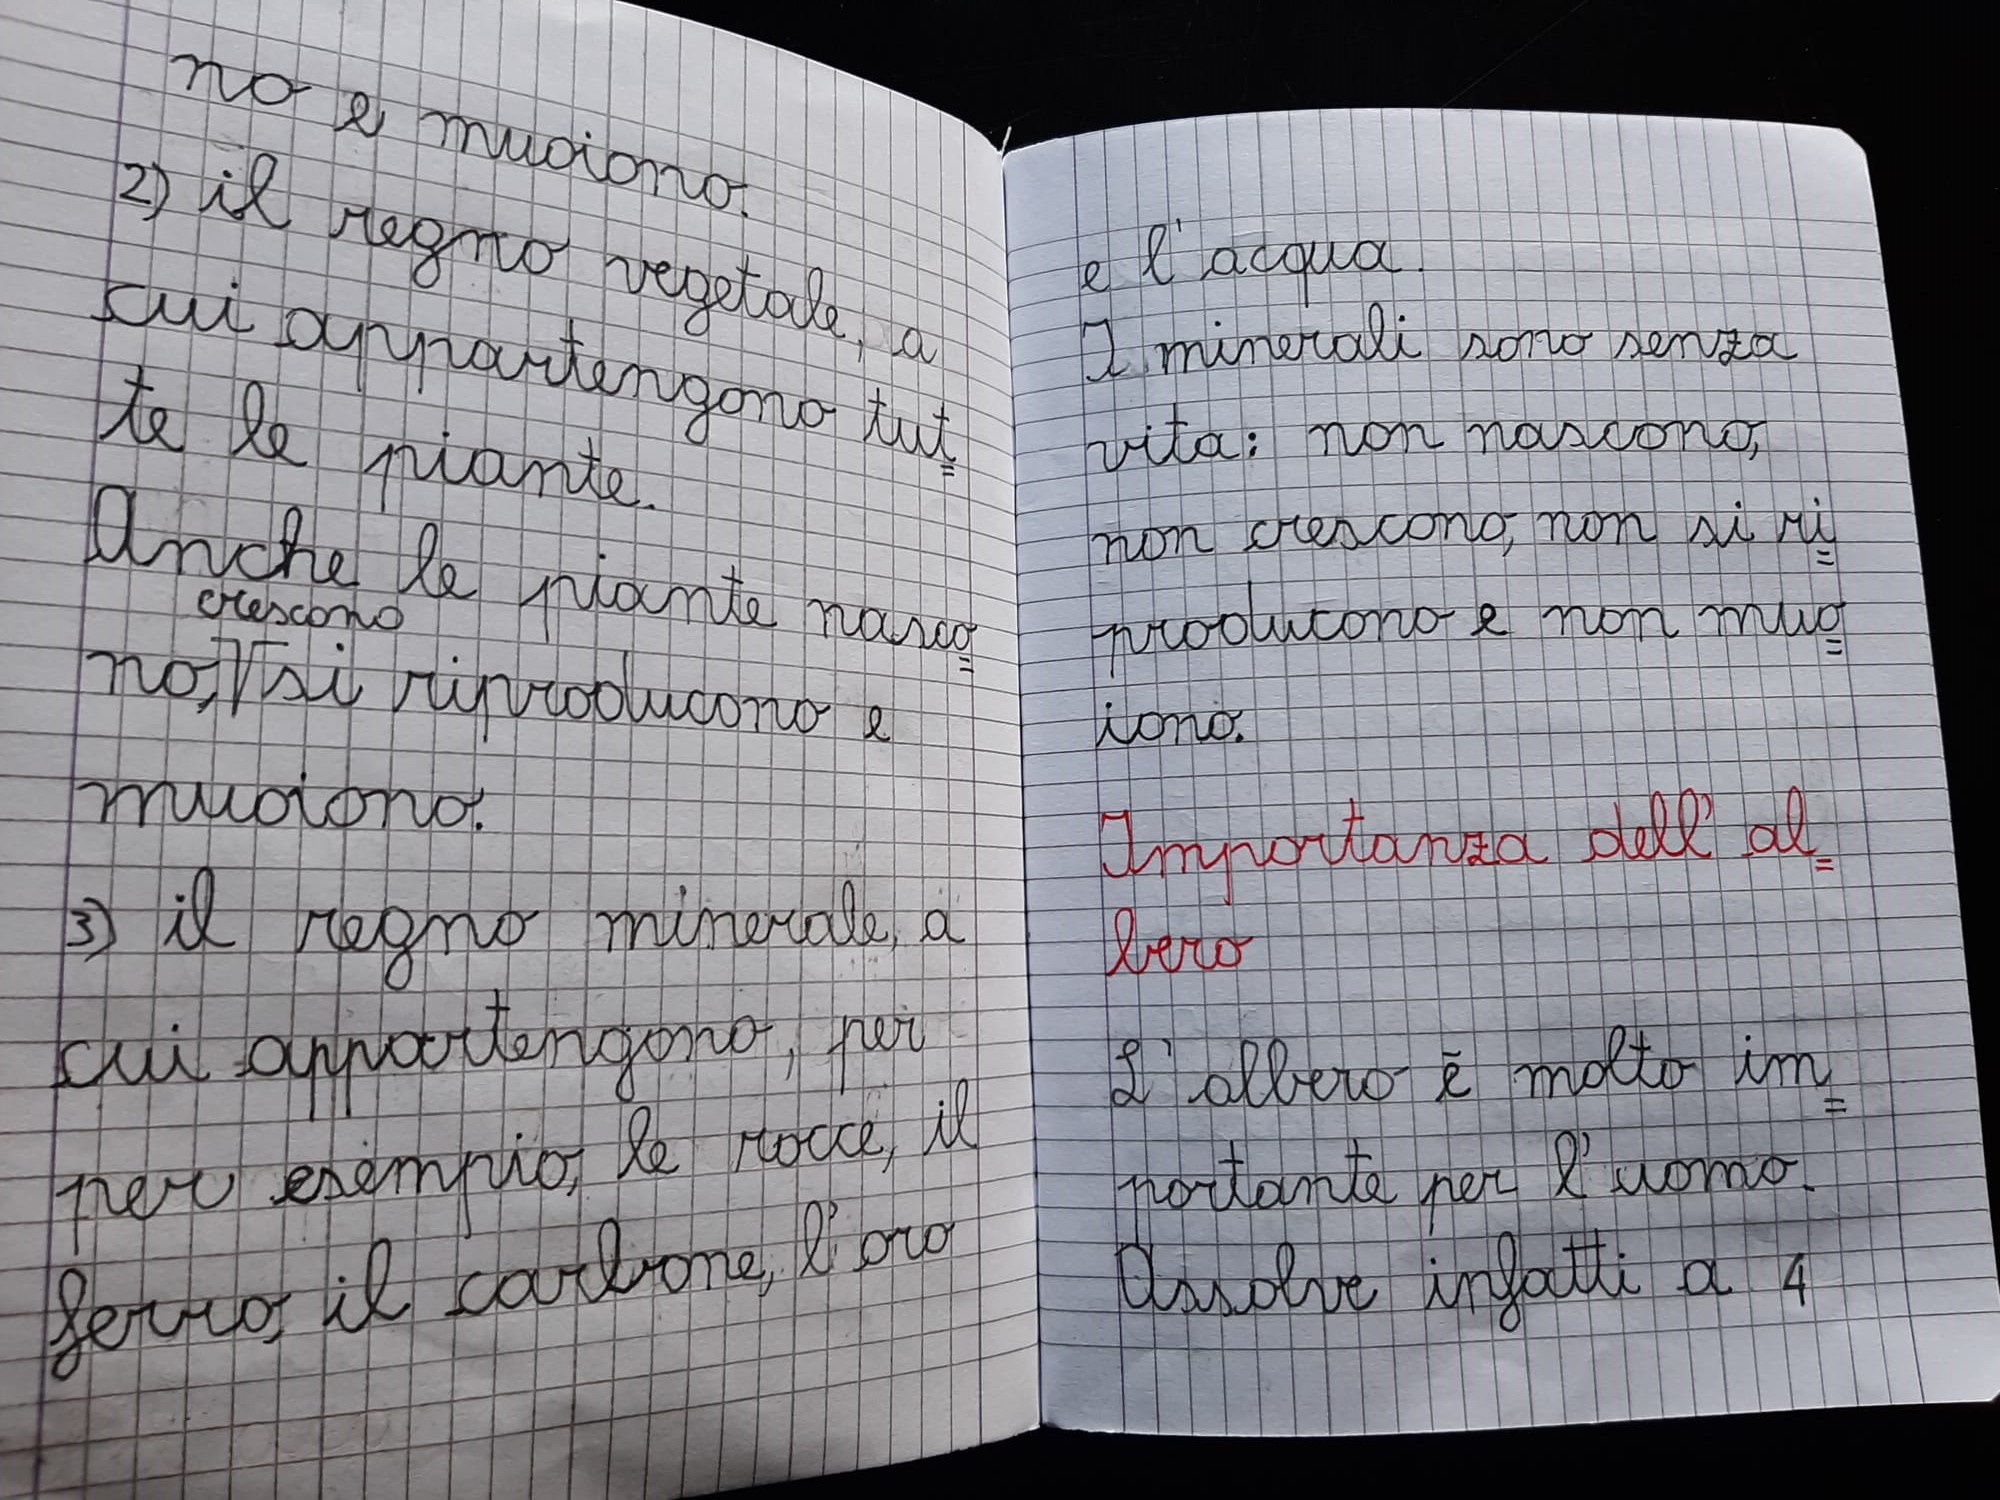 no e muoiono.
2) il regno vegetale, a
cui appartengono tut=
te le piante.
Anche le piante nasco=
crescono
no, si riproducono e
muoiono.
3) il regno minerale, a
cui appartengono, per
per esempio, le rocce, il
ferro, il carbone, l'oro
e l'acqua.
I minerali sono senza
vita: non nascono,
non crescono, non si ri=
producono e non muo=
iono.
Importanza dell'al=
bero
L'albero è molto im=
portante per l'uomo.
Assolve infatti a 4